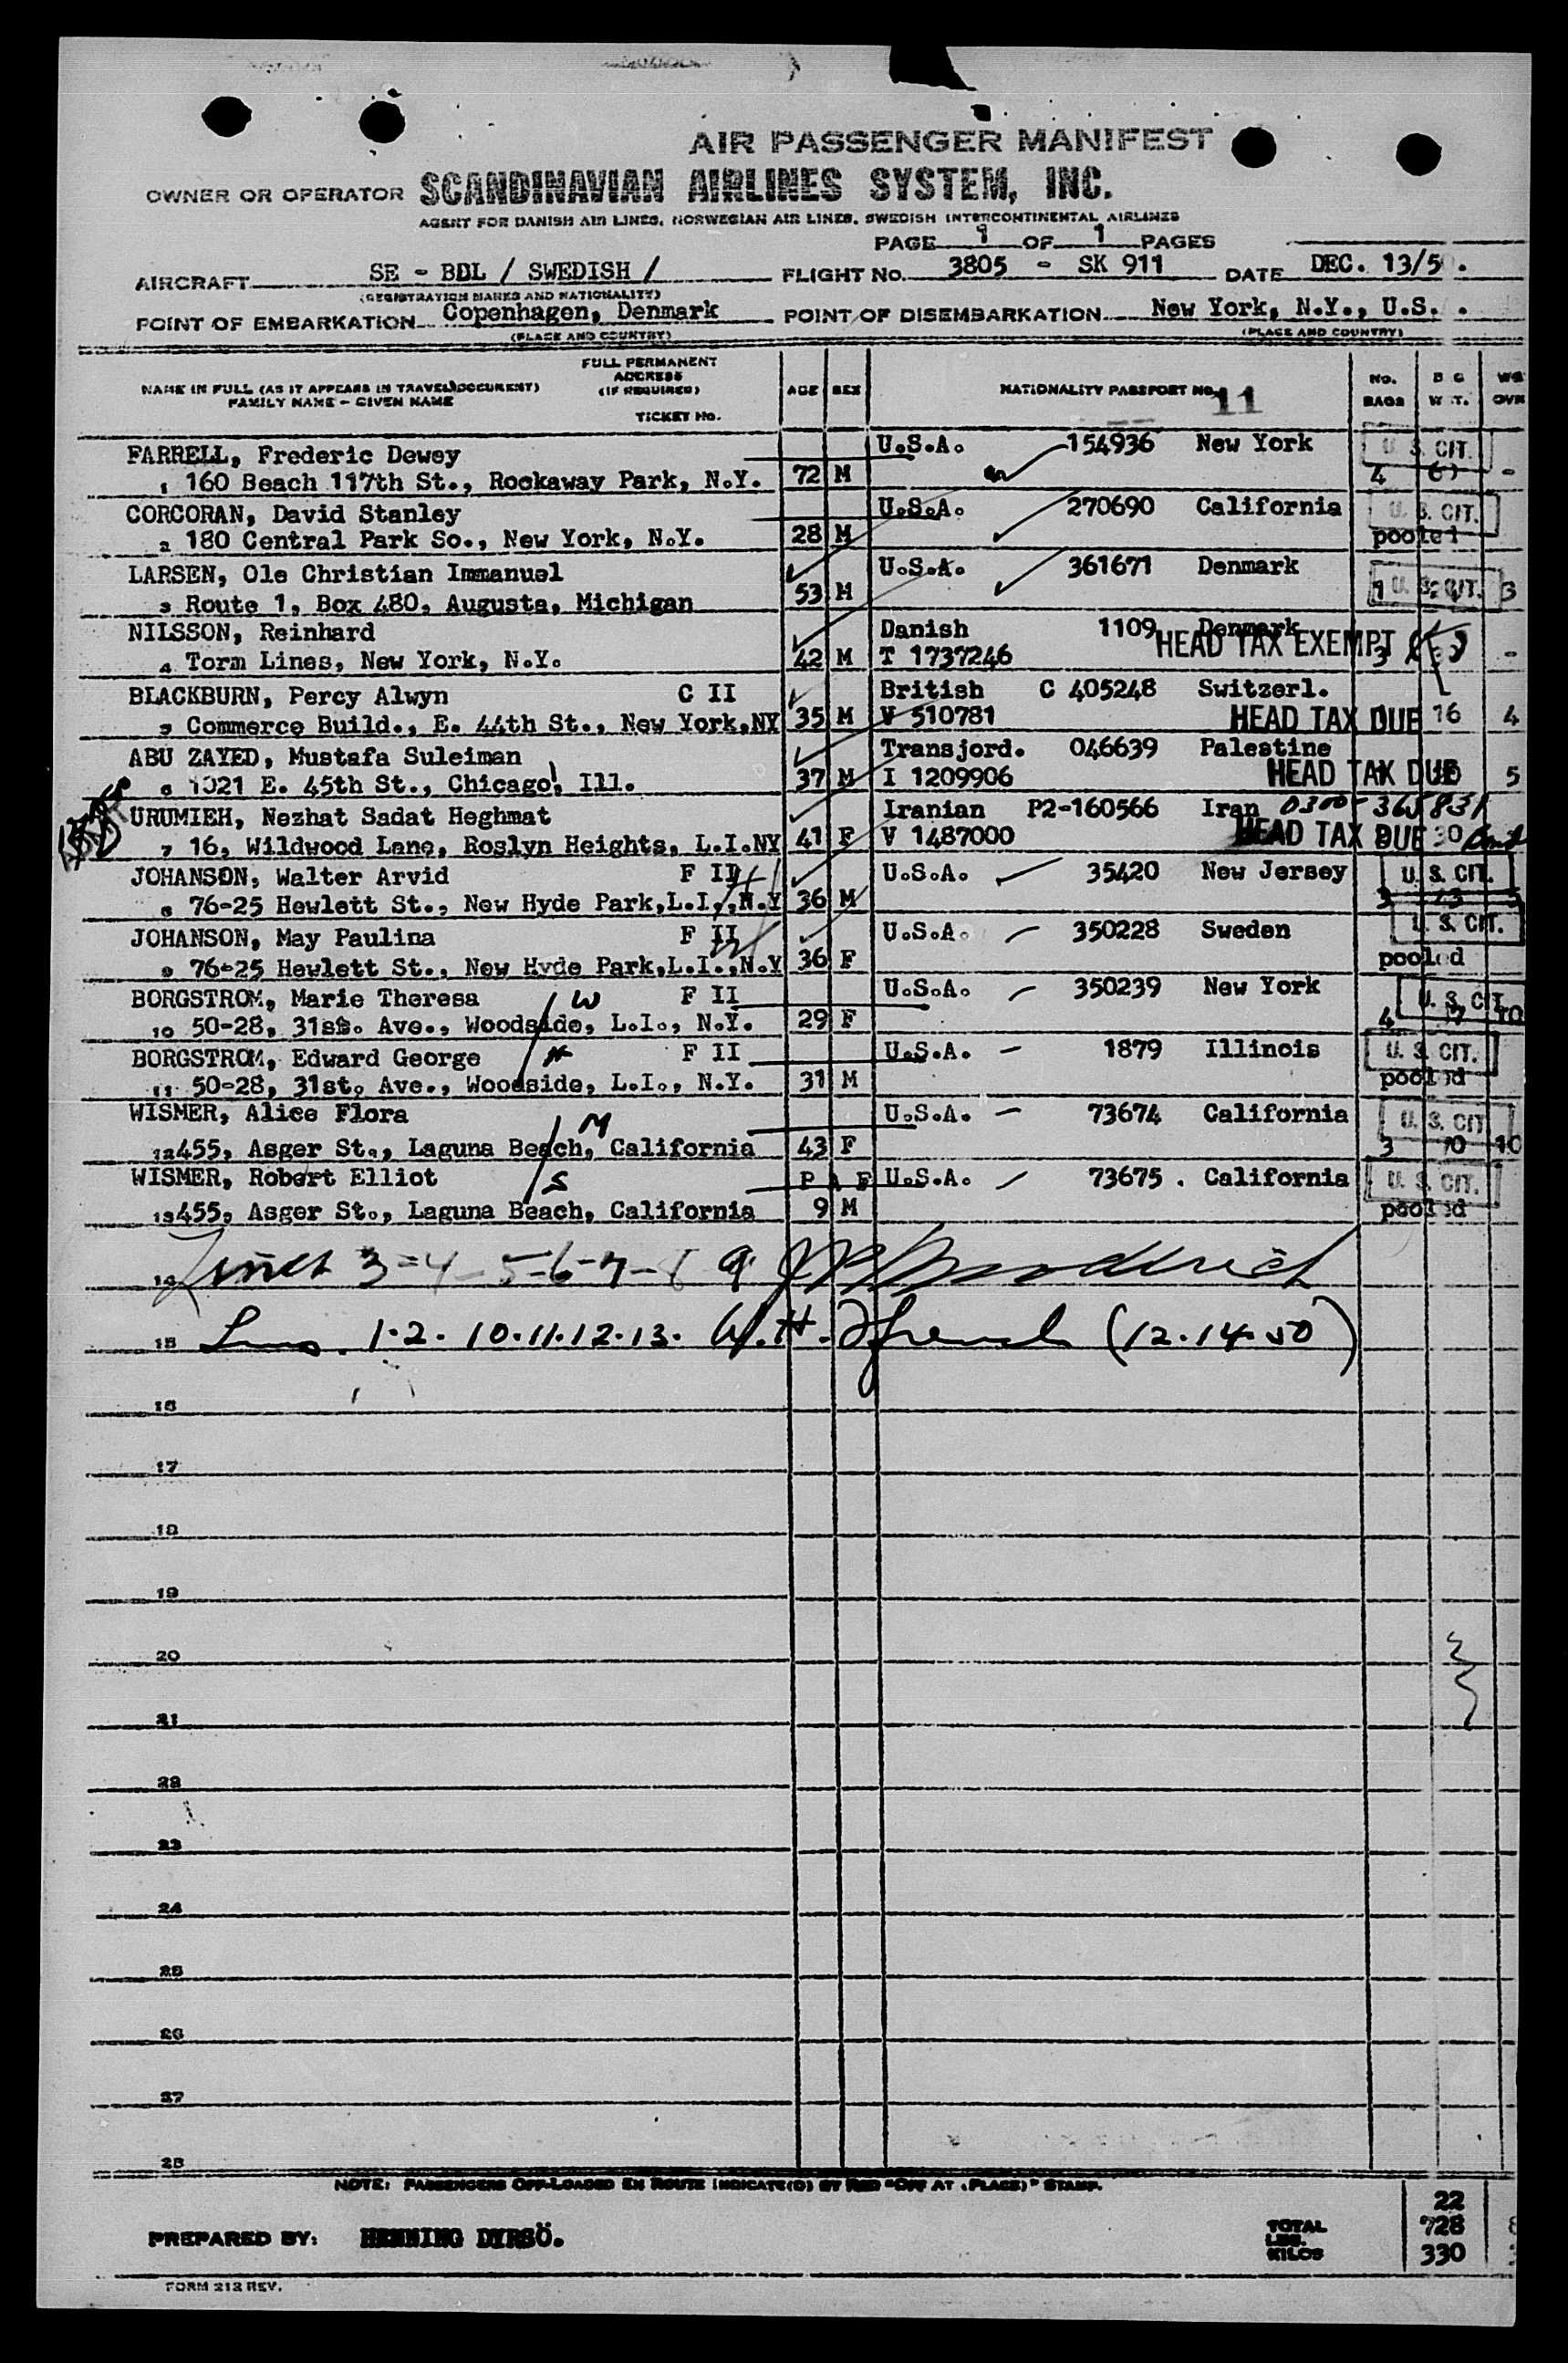 AIR PASSENGER MANIFEST
OWNER OR OPERATOR SCANDINAVIAN AIRLINES SYSTEM, INC.
AGENT FOR DANISH AIR LINES, NORWEGIAN AIR LINES, SWEDISH INTERCONTINENTAL AIRLINES
PAGE 1 OF 1 PAGES
AIRCRAFT SE - BDL / SWEDISH / FLIGHT No. 3805 - SK 911 DATE DEC. 13/5 .
(REGISTRATION MARKS AND NATIONALITY)
POINT OF EMBARKATION Copenhagen, Denmark POINT OF DISEMBARKATION New York, N.Y., U.S. .
(PLACE AND COUNTRY) (PLACE AND COUNTRY)
NAME IN FULL (AS IT APPEARS IN TRAVEL DOCUMENT) FAMILY NAME - GIVEN NAME FULL PERMANENT ADDRESS (IF REQUIRED) TICKET No. AGE SEX NATIONALITY PASSPORT No. 11 No. BAGS
FARRELL, Frederic Dewey U.S.A. 154936 New York U.S. CIT.
1 160 Beach 117th St., Rockaway Park, N.Y. 72 M 4 -
CORCORAN, David Stanley U.S.A. 270690 California U.S. CIT.
2 180 Central Park So., New York, N.Y. 28 M pooled
LARSEN, Ole Christian Immanuel U.S.A. 361671 Denmark
3 Route 1, Box 480, Augusta, Michigan 53 M 1 U.S. CIT. 3
NILSSON, Reinhard Danish 1109 Denmark HEAD TAX EXEMPT
4 Torm Lines, New York, N.Y. 42 M T 1737246 3 -
BLACKBURN, Percy Alwyn C II British C 405248 Switzerl.
5 Commerce Build., E. 44th St., New York,NY 35 M V 510781 HEAD TAX DUE 16 4
ABU ZAYED, Mustafa Suleiman Transjord. 046639 Palestine
6 1021 E. 45th St., Chicago, Ill. 37 M I 1209906 HEAD TAX DUE 5
URUMIEH, Nezhat Sadat Heghmat Iranian P2-160566 Iran 0300-365831
7 16, Wildwood Lane, Roslyn Heights, L.I.NY 41 F V 1487000 HEAD TAX DUE 30
JOHANSON, Walter Arvid F II H U.S.A. 35420 New Jersey U.S. CIT.
8 76-25 Hewlett St., New Hyde Park,L.I.,N.Y 36 M 3
JOHANSON, May Paulina F II W U.S.A. 350228 Sweden U.S. CIT.
9 76-25 Hewlett St., New Hyde Park,L.I.,N.Y 36 F pooled
BORGSTROM, Marie Theresa W F II U.S.A. 350239 New York U.S. CIT.
10 50-28, 31st. Ave., Woodside, L.I., N.Y. 29 F 4 10
BORGSTROM, Edward George H F II U.S.A. 1879 Illinois U.S. CIT.
11 50-28, 31st. Ave., Woodside, L.I., N.Y. 31 M pooled
WISMER, Alice Flora M U.S.A. 73674 California U.S. CIT.
12 455, Asger St., Laguna Beach, California 43 F 3 10
WISMER, Robert Elliot S U.S.A. 73675 . California U.S. CIT.
13 455, Asger St., Laguna Beach, California 9 M pooled
14 Lines 3-4-5-6-7-8 9
15 1.2. 10.11.12.13. W.H. French (12.14.50)
16
17
18
19
20
21
22
23
24
25
26
27
28
NOTE: PASSENGERS OFF-LOADED EN ROUTE INDICATE(D) BY RED "OFF AT (PLACE)" STAMP.
22
PREPARED BY: HENNING DYRSÖ. TOTAL LBS. 728
KILOS 330
FORM 212 REV.